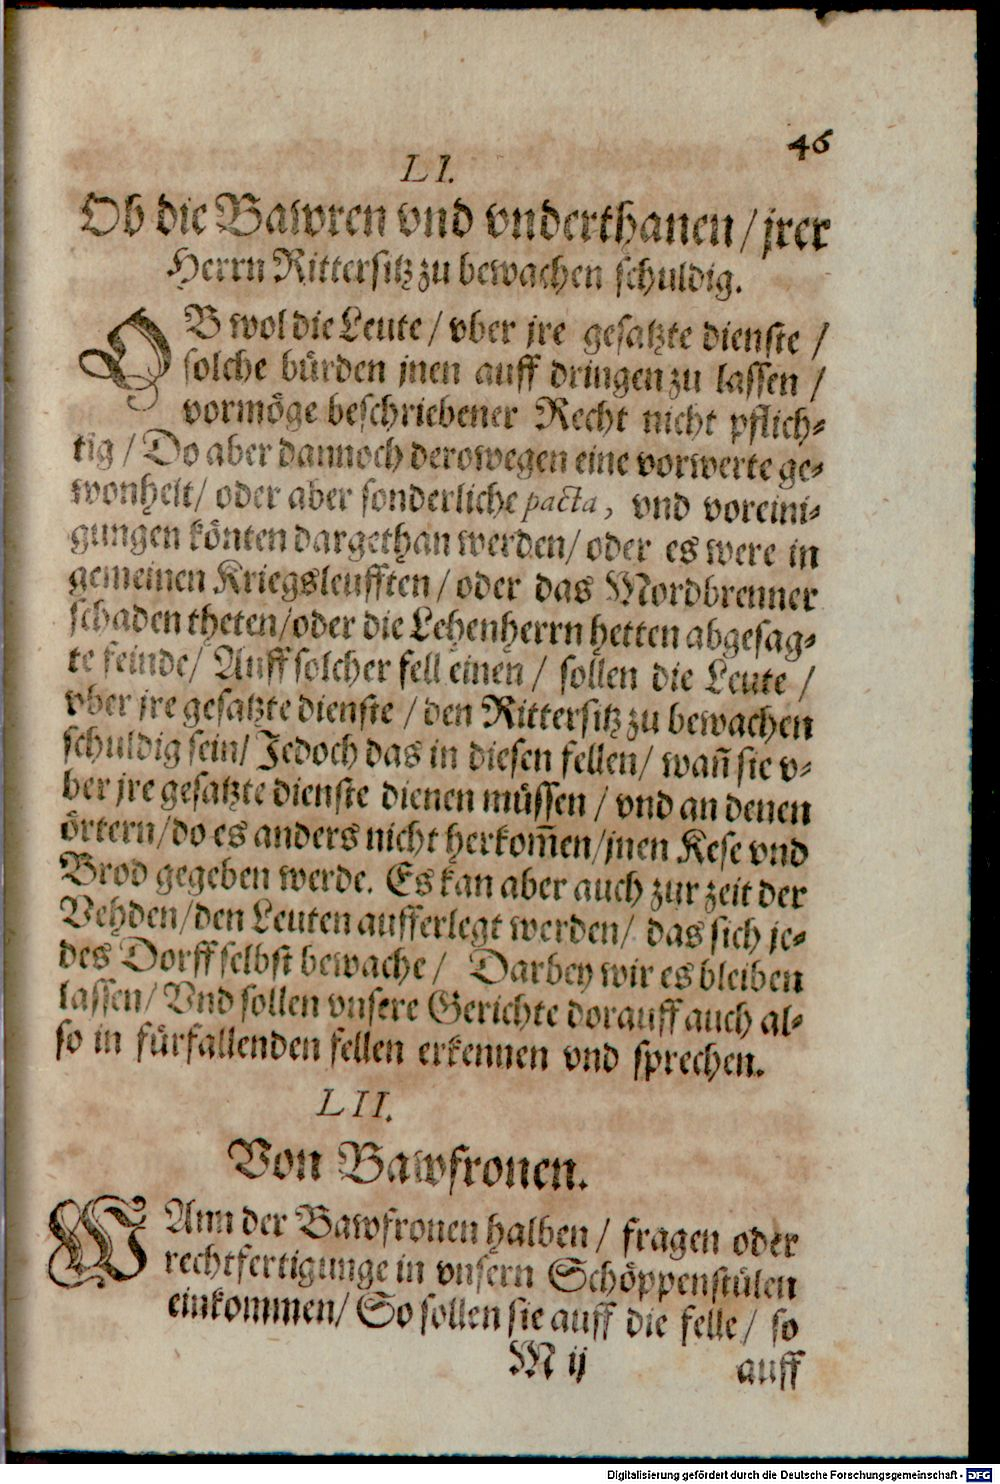 46
LI.
Ob die Bawren vnd vnderthanen / jrer
Herrn Rittersitz zu bewachen schuldig.
OB wol die Leute / vber jre gesatzte dienste /
solche bürden jnen auff dringen zu lassen /
vormöge beschriebener Recht nicht pflich-
tig / Do aber dannoch derowegen eine vorwerte ge-
wonheit / oder aber sonderliche pacta, vnd voreini-
gungen könten dargethan werden / oder es were in
gemeinen Kriegsleufften / oder das Mordbrenner
schaden theten / oder die Lehenherrn hetten abgesag-
te feinde / Auff solcher fell einen / sollen die Leute /
vber jre gesatzte dienste / den Rittersitz zu bewachen
schuldig sein / Jedoch das in diesen fellen / wañ sie v-
ber jre gesatzte dienste dienen müssen / vnd an denen
örtern / do es anders nicht herkom̃en / jnen Kese vnd
Brod gegeben werde. Es kan aber auch zur zeit der
Vehden / den Leuten aufferlegt werden / das sich je-
des Dorff selbst bewache / Darbey wir es bleiben
lassen / Vnd sollen vnsere Gerichte dorauff auch al-
so in fürfallenden fellen erkennen vnd sprechen.
LII.
Von Bawfronen.
WAnn der Bawfronen halben / fragen oder
rechtfertigunge in vnsern Schöppenstülen
einkommen / So sollen sie auff die felle / so
M ij
auff
Digitalisierung gefördert durch die Deutsche Forschungsgemeinschaft - DFG